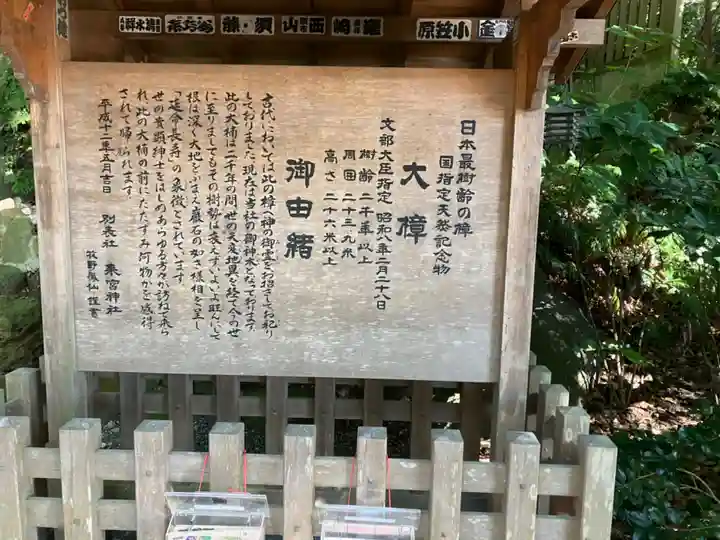 金
小笠原
西山
須藤
日本最樹齢の樟
国指定天然記念物
大樟
文部大臣指定 昭和八年二月二十八日
樹齢 二千年以上
周囲 二十三、九米
高さ 二十六米以上
御由緒
古代においては此の樟に神の御霊をお招してお祀り
しておりました。現在は当社の御神木となっております。
此の大楠は二千年の間世の天変地異を経て今の世
に至りましてもその樹勢は衰えずいよいよ旺んにして
根は深く大地をふまえ巌石の如き様相を呈し
「延命長寿」の象徴とされています。
世の貴顕紳士をはじめあらゆる方々が訪ねて来ら
れ、此の大楠の前にたたずみ何物かを感得
されて帰られます。
平成十二年五月吉日
別表社 来宮神社
牧野 仙 謹書